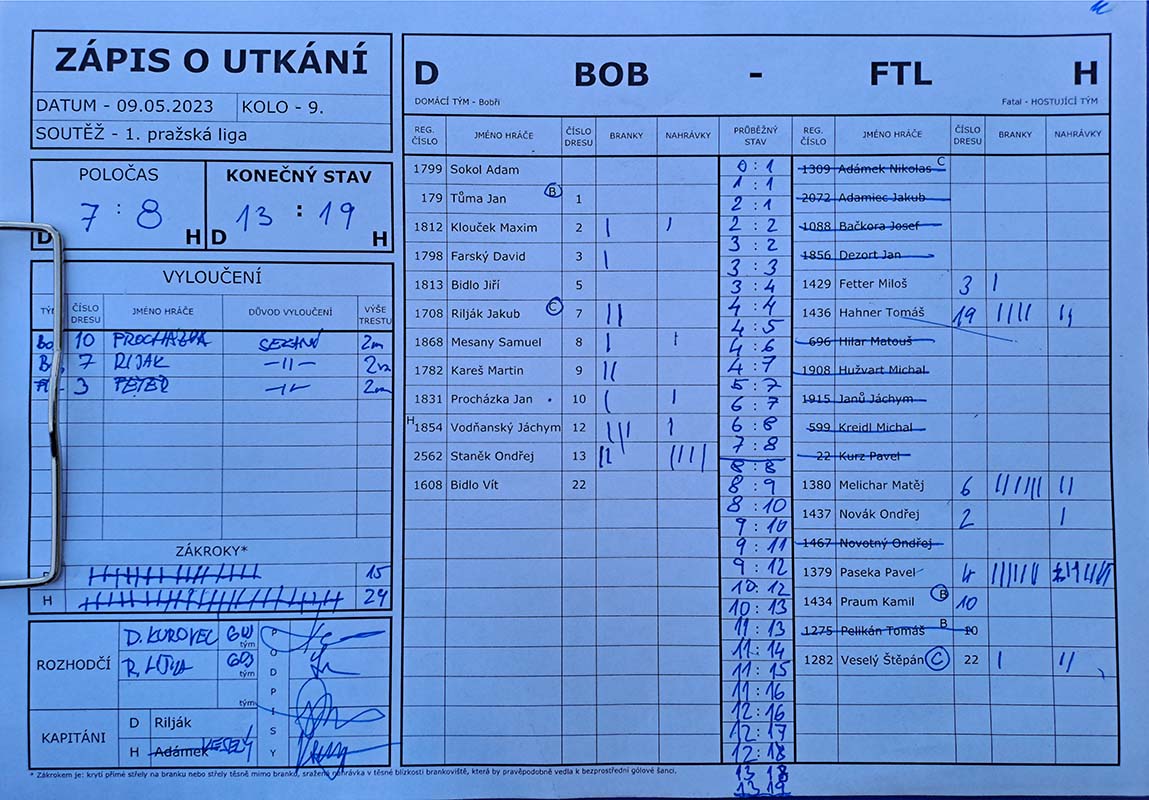 ZÁPIS O UTKÁNÍ
DATUM - 09.05.2023 KOLO - 9.
SOUTĚŽ - 1. pražská liga
POLOČAS KONEČNÝ STAV
7 : 8 13 : 19
D H D H
VYLOUČENÍ
ČÍSLO DRESU JMÉNO HRÁČE DŮVOD VYLOUČENÍ VÝŠE TRESTU
10 PROCHÁZKA SEKÁNÍ 2m
7 RILJAK -11- 2m
3 2m
ZÁKROKY*
15
H 24
ROZHODČÍ D. KUROVEC tým
R. tým
tým
PODPISY
KAPITÁNI D Rilják
H Adámek VESELÝ
D BOB - FTL H
DOMÁCÍ TÝM - Bobři Fatal - HOSTUJÍCÍ TÝM
REG. ČÍSLO JMÉNO HRÁČE ČÍSLO DRESU BRANKY NAHRÁVKY PRŮBĚŽNÝ STAV REG. ČÍSLO JMÉNO HRÁČE ČÍSLO DRESU BRANKY NAHRÁVKY
1799 Sokol Adam
179 Tůma Jan B 1
1812 Klouček Maxim 2
1798 Farský David 3
1813 Bidlo Jiří 5
1708 Rilják Jakub C 7
1868 Mesany Samuel 8
1782 Kareš Martin 9
1831 Procházka Jan 10
H 1854 Vodňanský Jáchym 12
2562 Staněk Ondřej 13
1608 Bidlo Vít 22
0 : 1
1 : 1
2 : 1
2 : 2
3 : 2
3 : 3
3 : 4
4 : 4
4 : 5
4 : 6
4 : 7
5 : 7
6 : 7
6 : 8
7 : 8
8 : 8
8 : 9
8 : 10
9 : 10
9 : 11
9 : 12
10 : 12
10 : 13
11 : 13
11 : 14
11 : 15
11 : 16
12 : 16
12 : 17
12 : 18
13 18
13 19
1309 Adámek Nikolas C
2072 Adamiec Jakub
1088 Bačkora Josef
1856 Dezort Jan
1429 Fetter Miloš 3
1436 Hahner Tomáš 19
696 Hilar Matouš
1908 Hužvart Michal
1915 Janů Jáchym
599 Kreidl Michal
22 Kurz Pavel
1380 Melichar Matěj 6
1437 Novák Ondřej 2
1467 Novotný Ondřej
1379 Paseka Pavel 4
1434 Praum Kamil B 10
1275 Pelikán Tomáš B 10
1282 Veselý Štěpán C 22
* Zákrokem je: krytí přímé střely na branku nebo střely těsně mimo branku, sražená nahrávka v těsné blízkosti brankoviště, která by pravěpodobně vedla k bezprostřední gólové šanci.